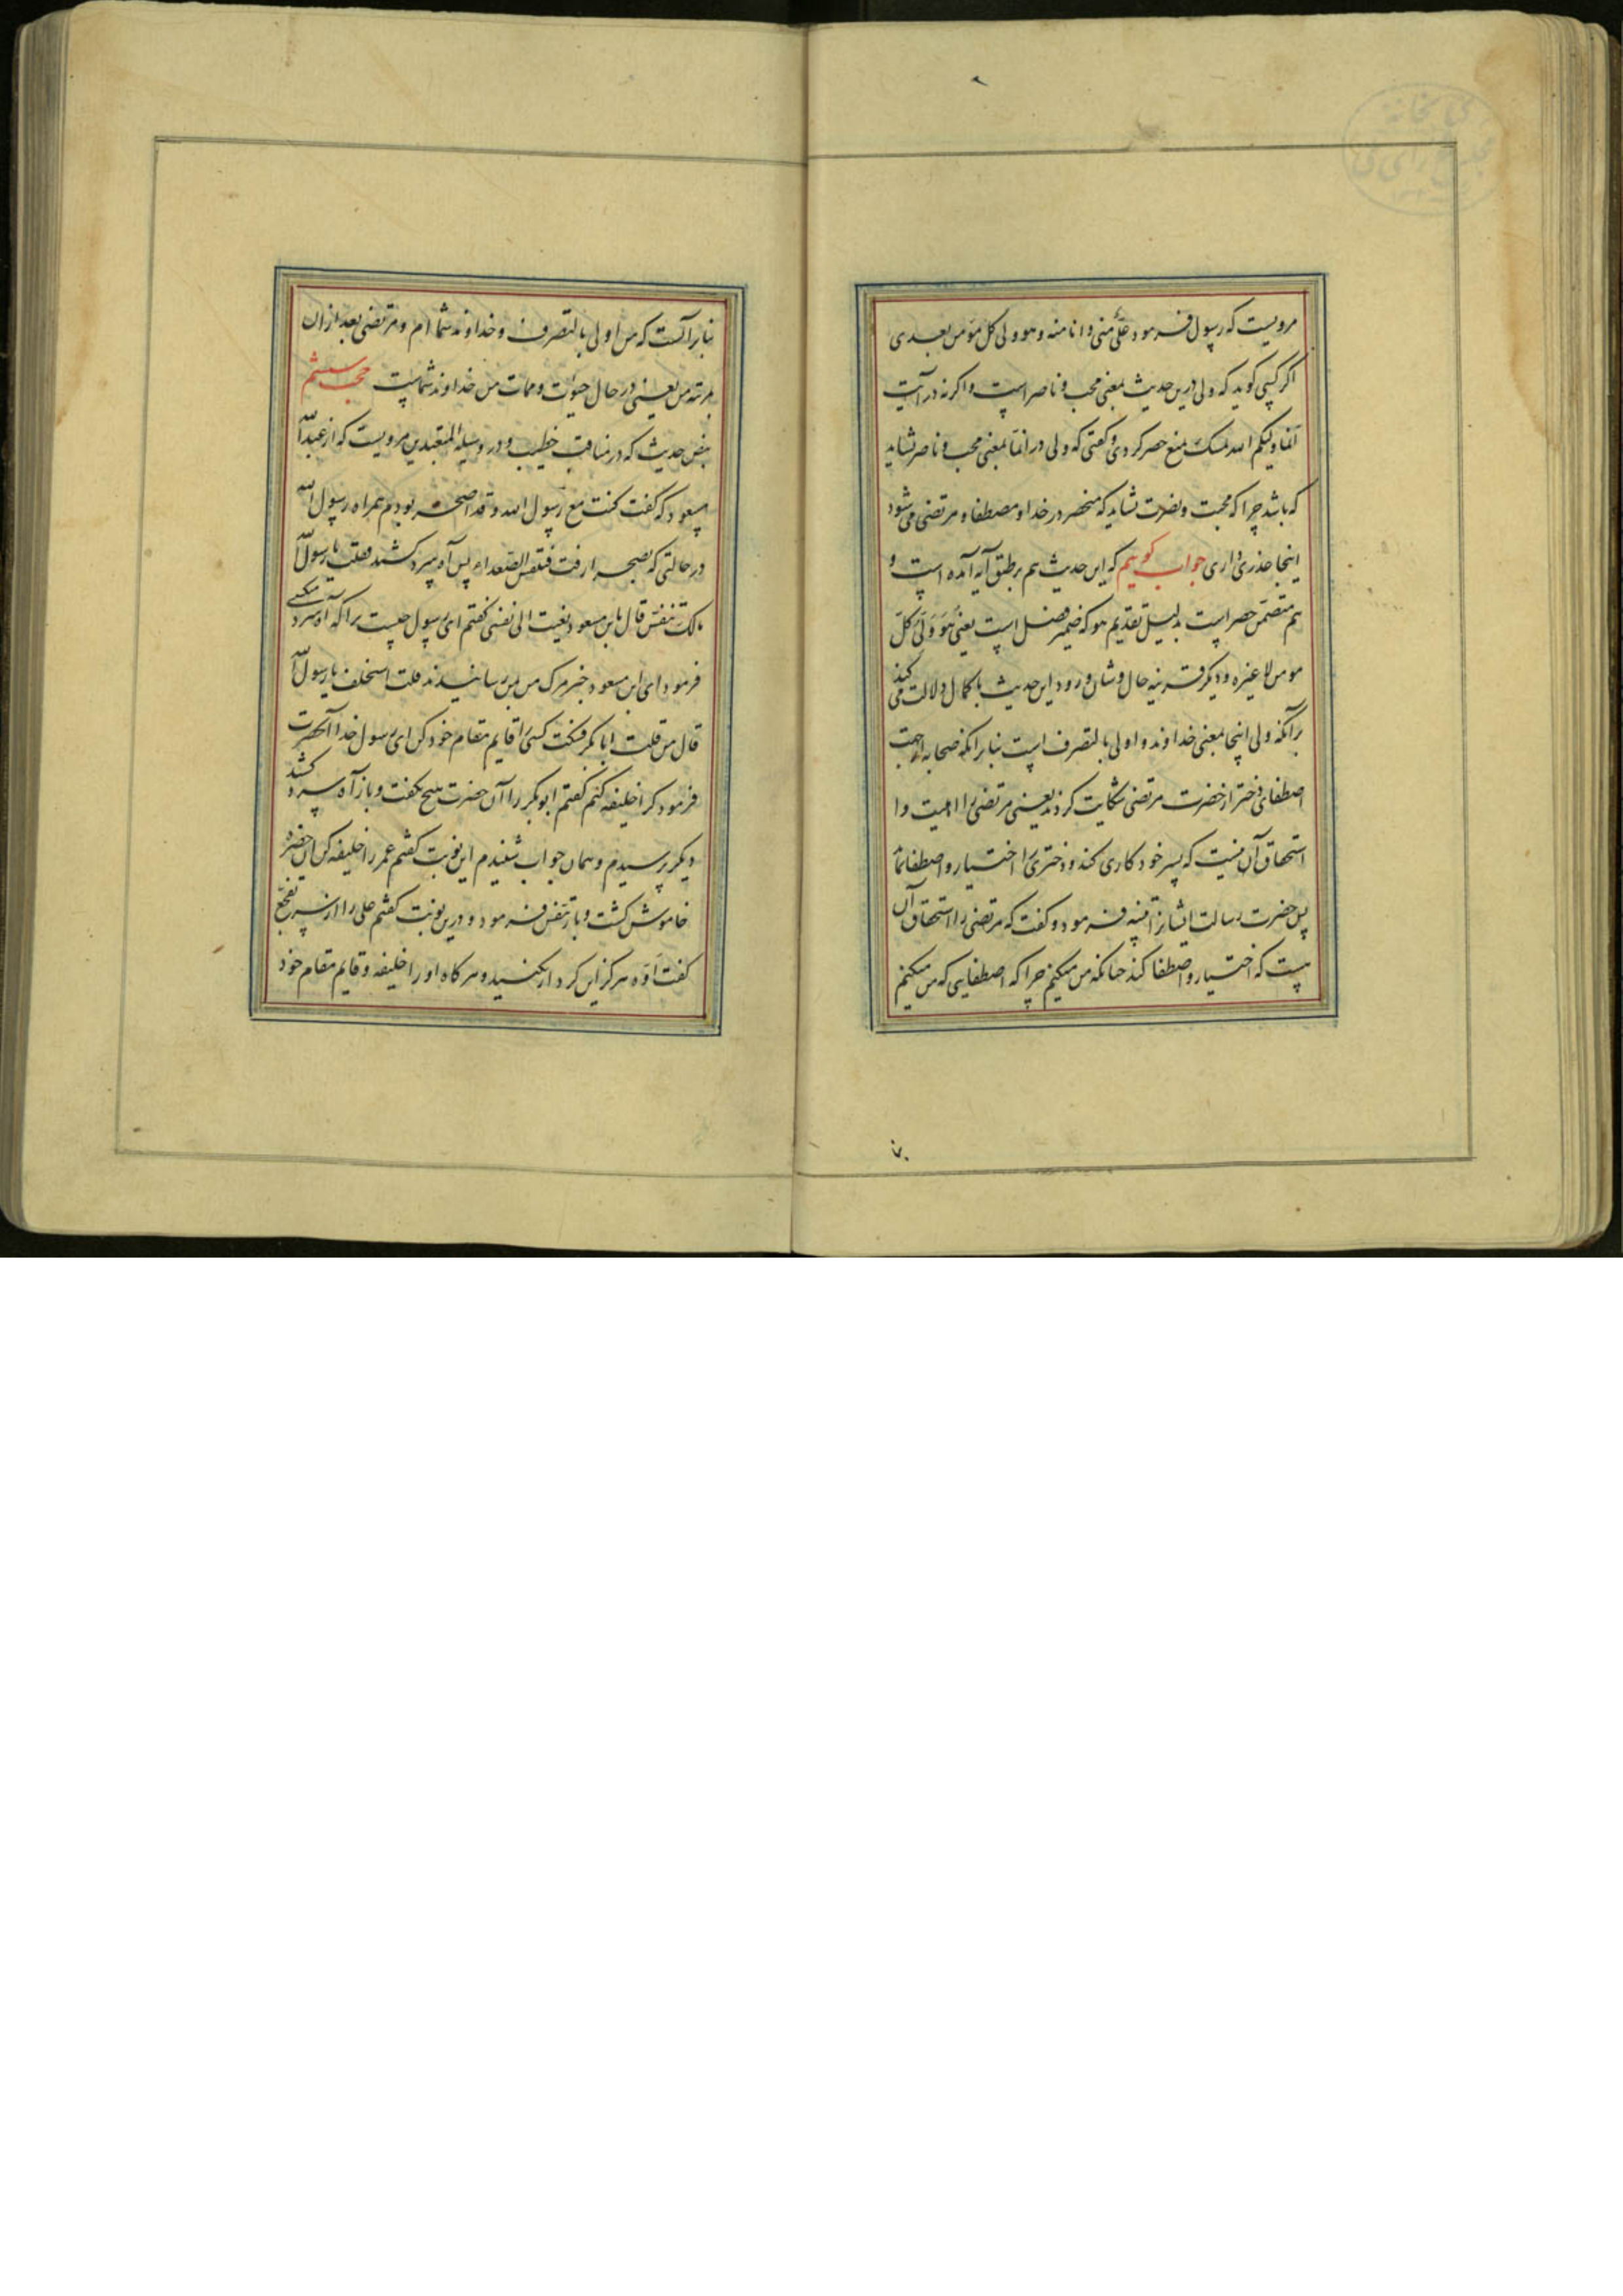 مرویست که رسول فرمود علیّ منی و انا منه و هو ولی کل مؤمن بعدی
اکر کسی کوید که ولی درین حدیث بمعنی محب و ناصر است و اکر نه در آیت
انما ولیکم الله تمسک بمنع حصر کردی و کفتی که ولی در انما بمعنی محب و ناصر نشاید
که باشد چرا که محبت و نصرت نشاید که منحصر در خدا و مصطفا و مرتضی می شود
اینجا عذری داری جواب کوییم که این حدیث هم بر طبق آیه آمده است و
هم متضمن حصر است بدلیل تقدیم هو که ضمیر فصل است یعنی هو ولی کل
مومن لا غیره و دیکر قرینه حال و شان ورود این حدیث بالکمال دلالت می کند
برآنکه ولی اینجا بمعنی خداوند و اولی بالتصرف است بنابر آنکه صحابه از جهت
اصطفای دختر از حضرت مرتضی شکایت کردند یعنی مرتضی را اهلیت و ا
استحقاق آن نیست که بسر خود کاری کند و دختری را اختیار و اصطفا نماید
پس حضرت رسالت ایشانرا تنبیه فرمود و کفت که مرتضی را استحقاق آن
هست که اختیار و اصطفا کند چنانکه من میکنم چرا که اصطفایی که من میکنم
بنابر آنست که من اولی بالتصرف و خداوند شما ام و مرتضی بعد از ان
بمرتبه من یعنی در حال حیوت و ممات من خداوند شماست حجت ششم
نص حدیث که در مناقب خطیب و در وسیلة المتعبدین مرویست که از عبد الله
مسعود که کفت کنت مع رسول الله و قد اصحر بودم همراه رسول الله
در حالتی که بصحرا رفت فتنفس الصعداء پس آه سرد کشید فقلت یا رسول الله
مالک تتنفس قال یابن مسعود نعیت الی نفسی کفتم ای رسول چیست ترا که آه سرد میکشی
فرمود ای ابن مسعود خبر مرک من بمن رسانیدند قلت استخلف یا رسول الله
قال من قلت ابابکر فسکت کسی را قایم مقام خود کن ای رسول خدا آنحضرت
فرمود کرا خلیفه کنم کفتم ابوبکر را آن حضرت هیچ نکفت و باز آه سرد کشید
دیکر پرسیدم و همان جواب شنیدم این نوبت کفتم عمر را خلیفه کن این حضرة
خاموش کشت و باز تنفس فرمود و درین نوبت کفتم علی را از سر تفجع
کفت اوه هرکز این کردار نکنید و هرکاه او را خلیفه و قایم مقام خود